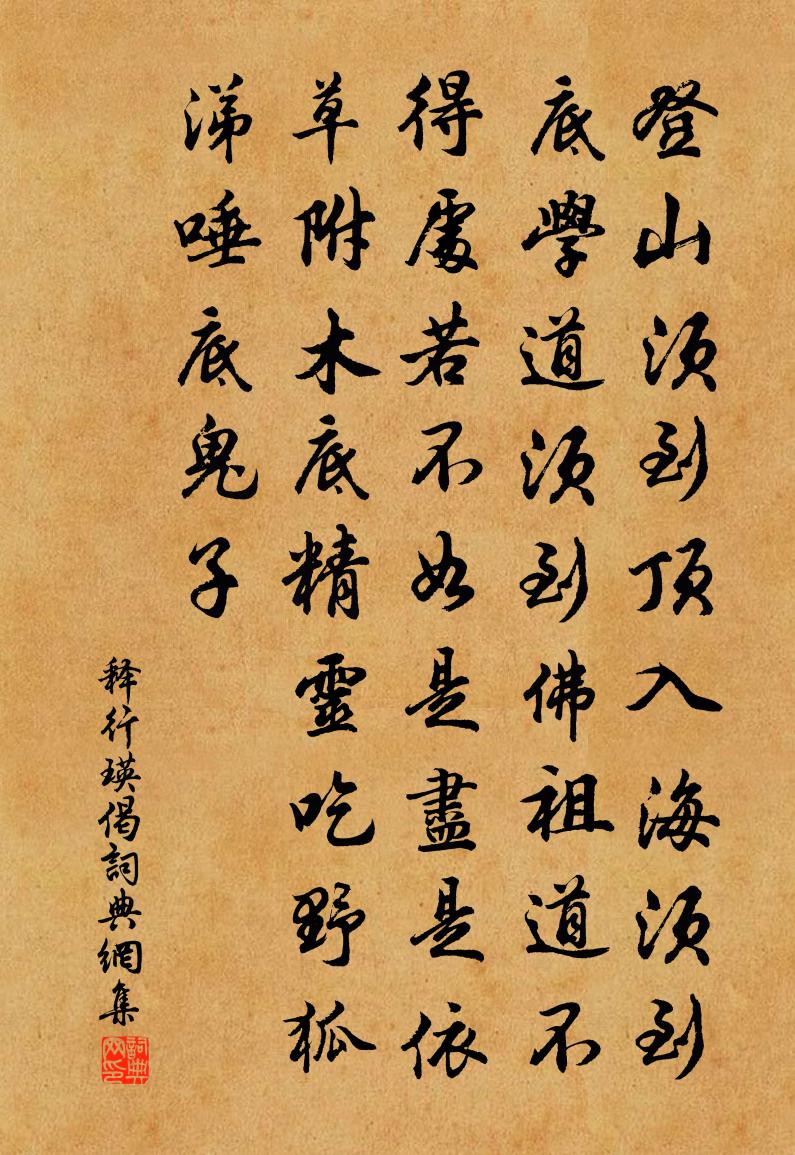 登山須到頂入海須到
底學道須到佛祖道不
得處若不如是盡是依
草附木底精靈吃野狐
涕唾底鬼子
释行瑛偈詞典網集
詞典网印